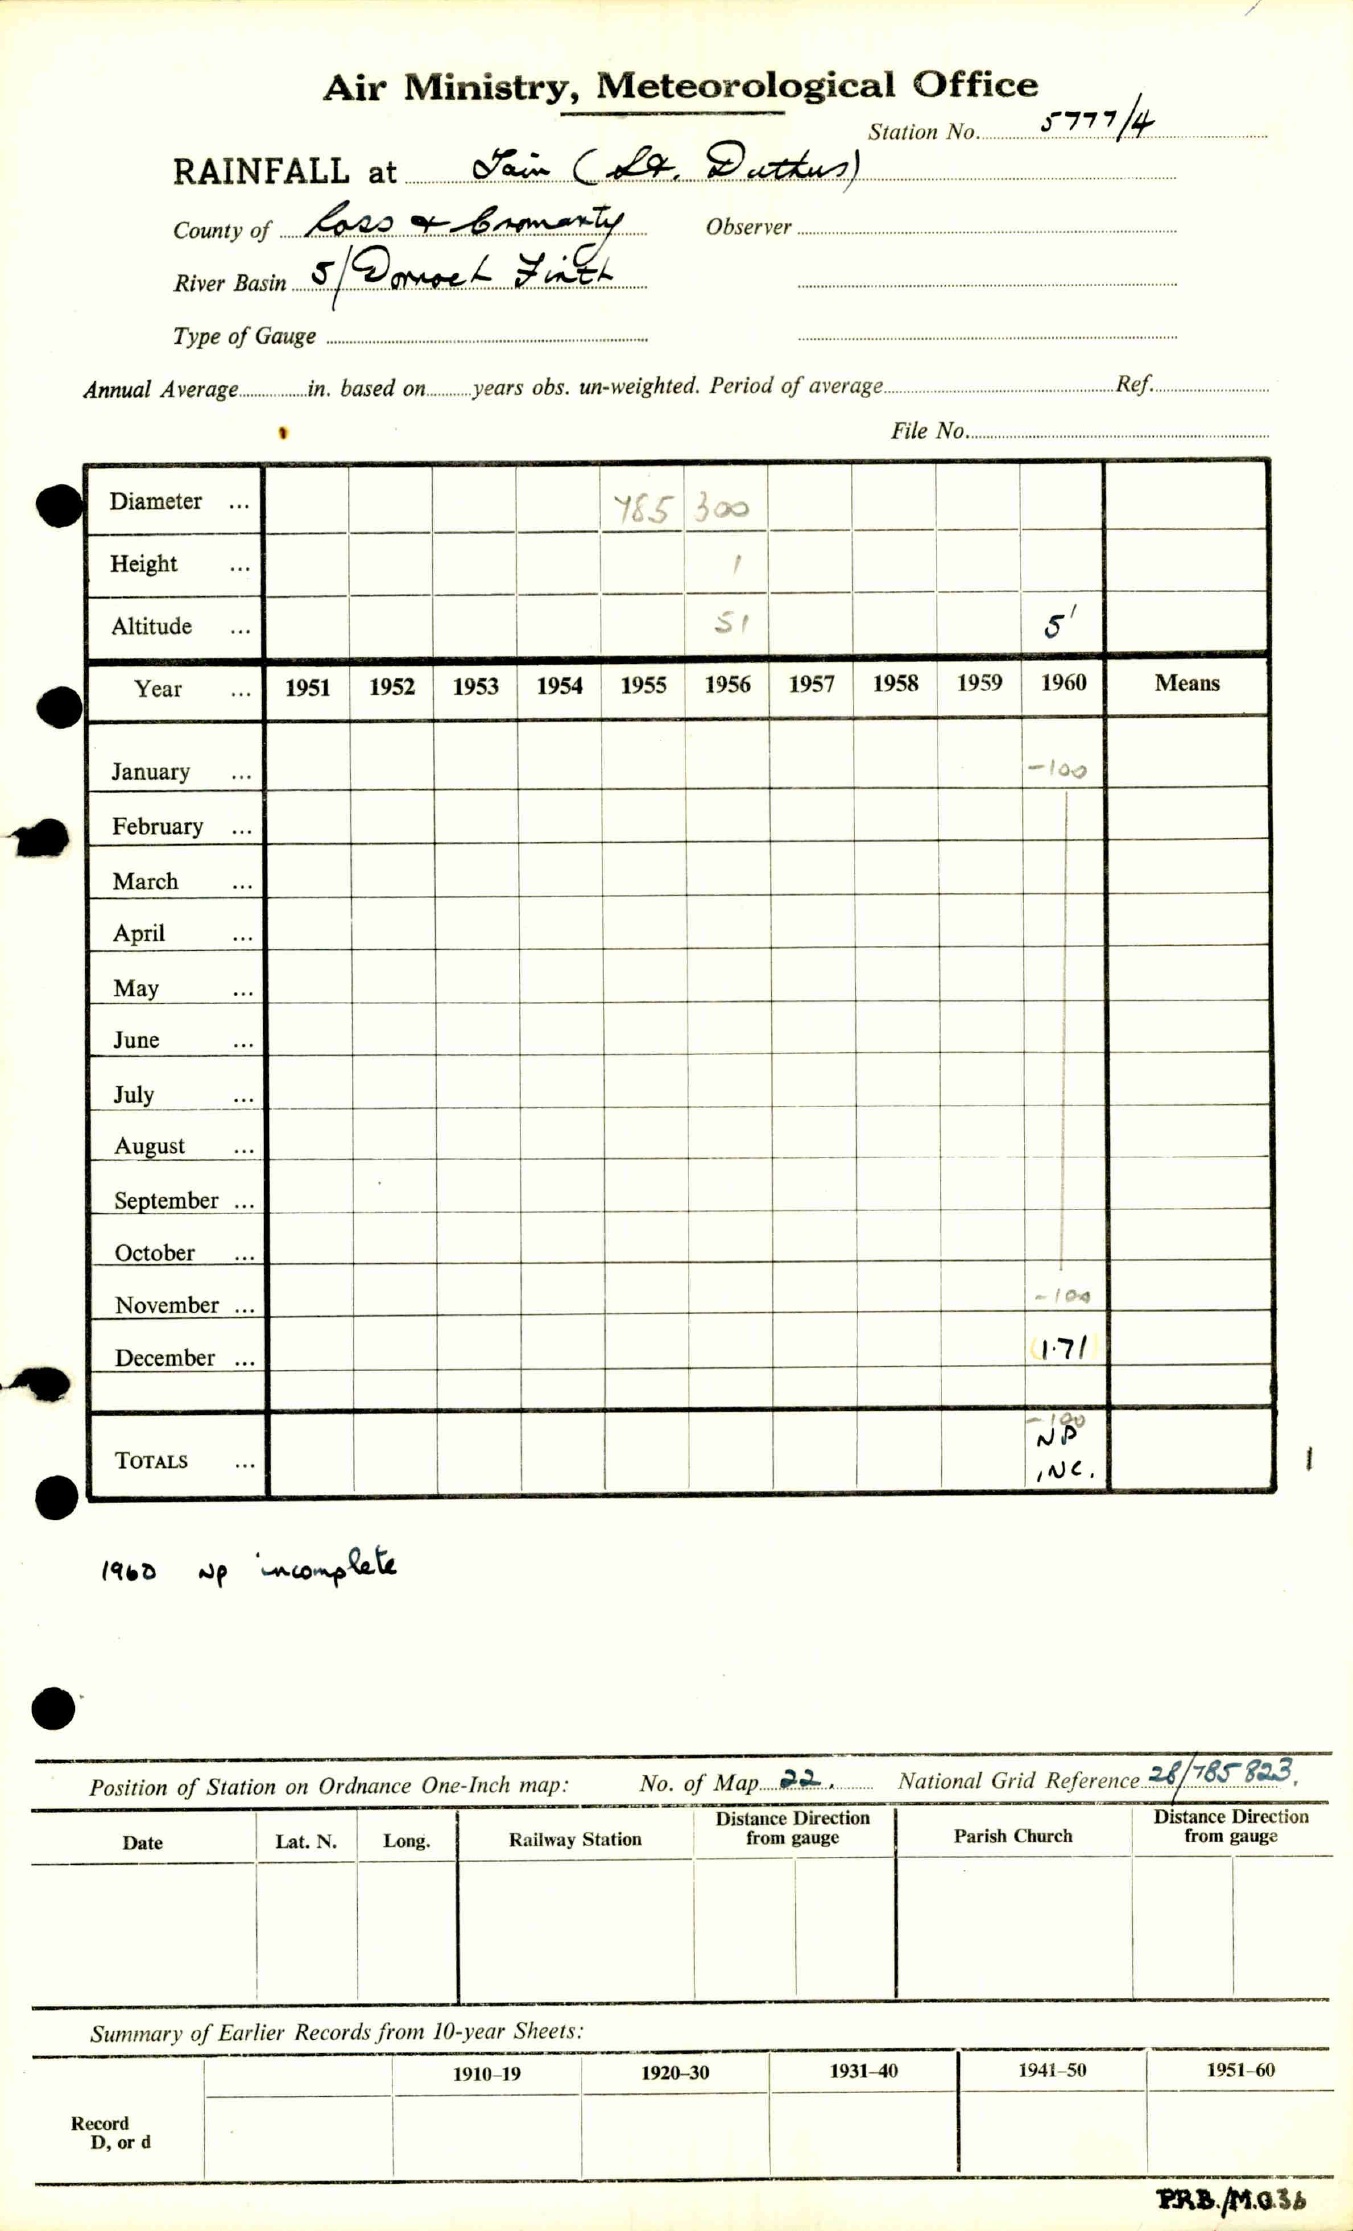 Air Ministry, Meteorological Office
Station No. 5777/4
RAINFALL at Tain (St. Duthus)
County of Ross & Cromarty Observer
River Basin 5/Dornoch Firth
Type of Gauge
Annual Average in. based on years obs. un-weighted. Period of average Ref.
File No.
Diameter ... 785 300
Height ... 1
Altitude ... 51 5'
Year ... 1951 1952 1953 1954 1955 1956 1957 1958 1959 1960 Means
January ... -100
February ...
March ...
April ...
May ...
June ...
July ...
August ...
September ...
October ...
November ... -100
December ... 1.71
-100
NP
TOTALS ... INC.
1
1960 NP incomplete
Position of Station on Ordnance One-Inch map: No. of Map 22. National Grid Reference 28/785823.
Date Lat. N. Long. Railway Station Distance Direction from gauge Parish Church Distance Direction from gauge
Summary of Earlier Records from 10-year Sheets:
1910–19 1920–30 1931–40 1941–50 1951–60
Record
D, or d
P.R.B./M.O.36